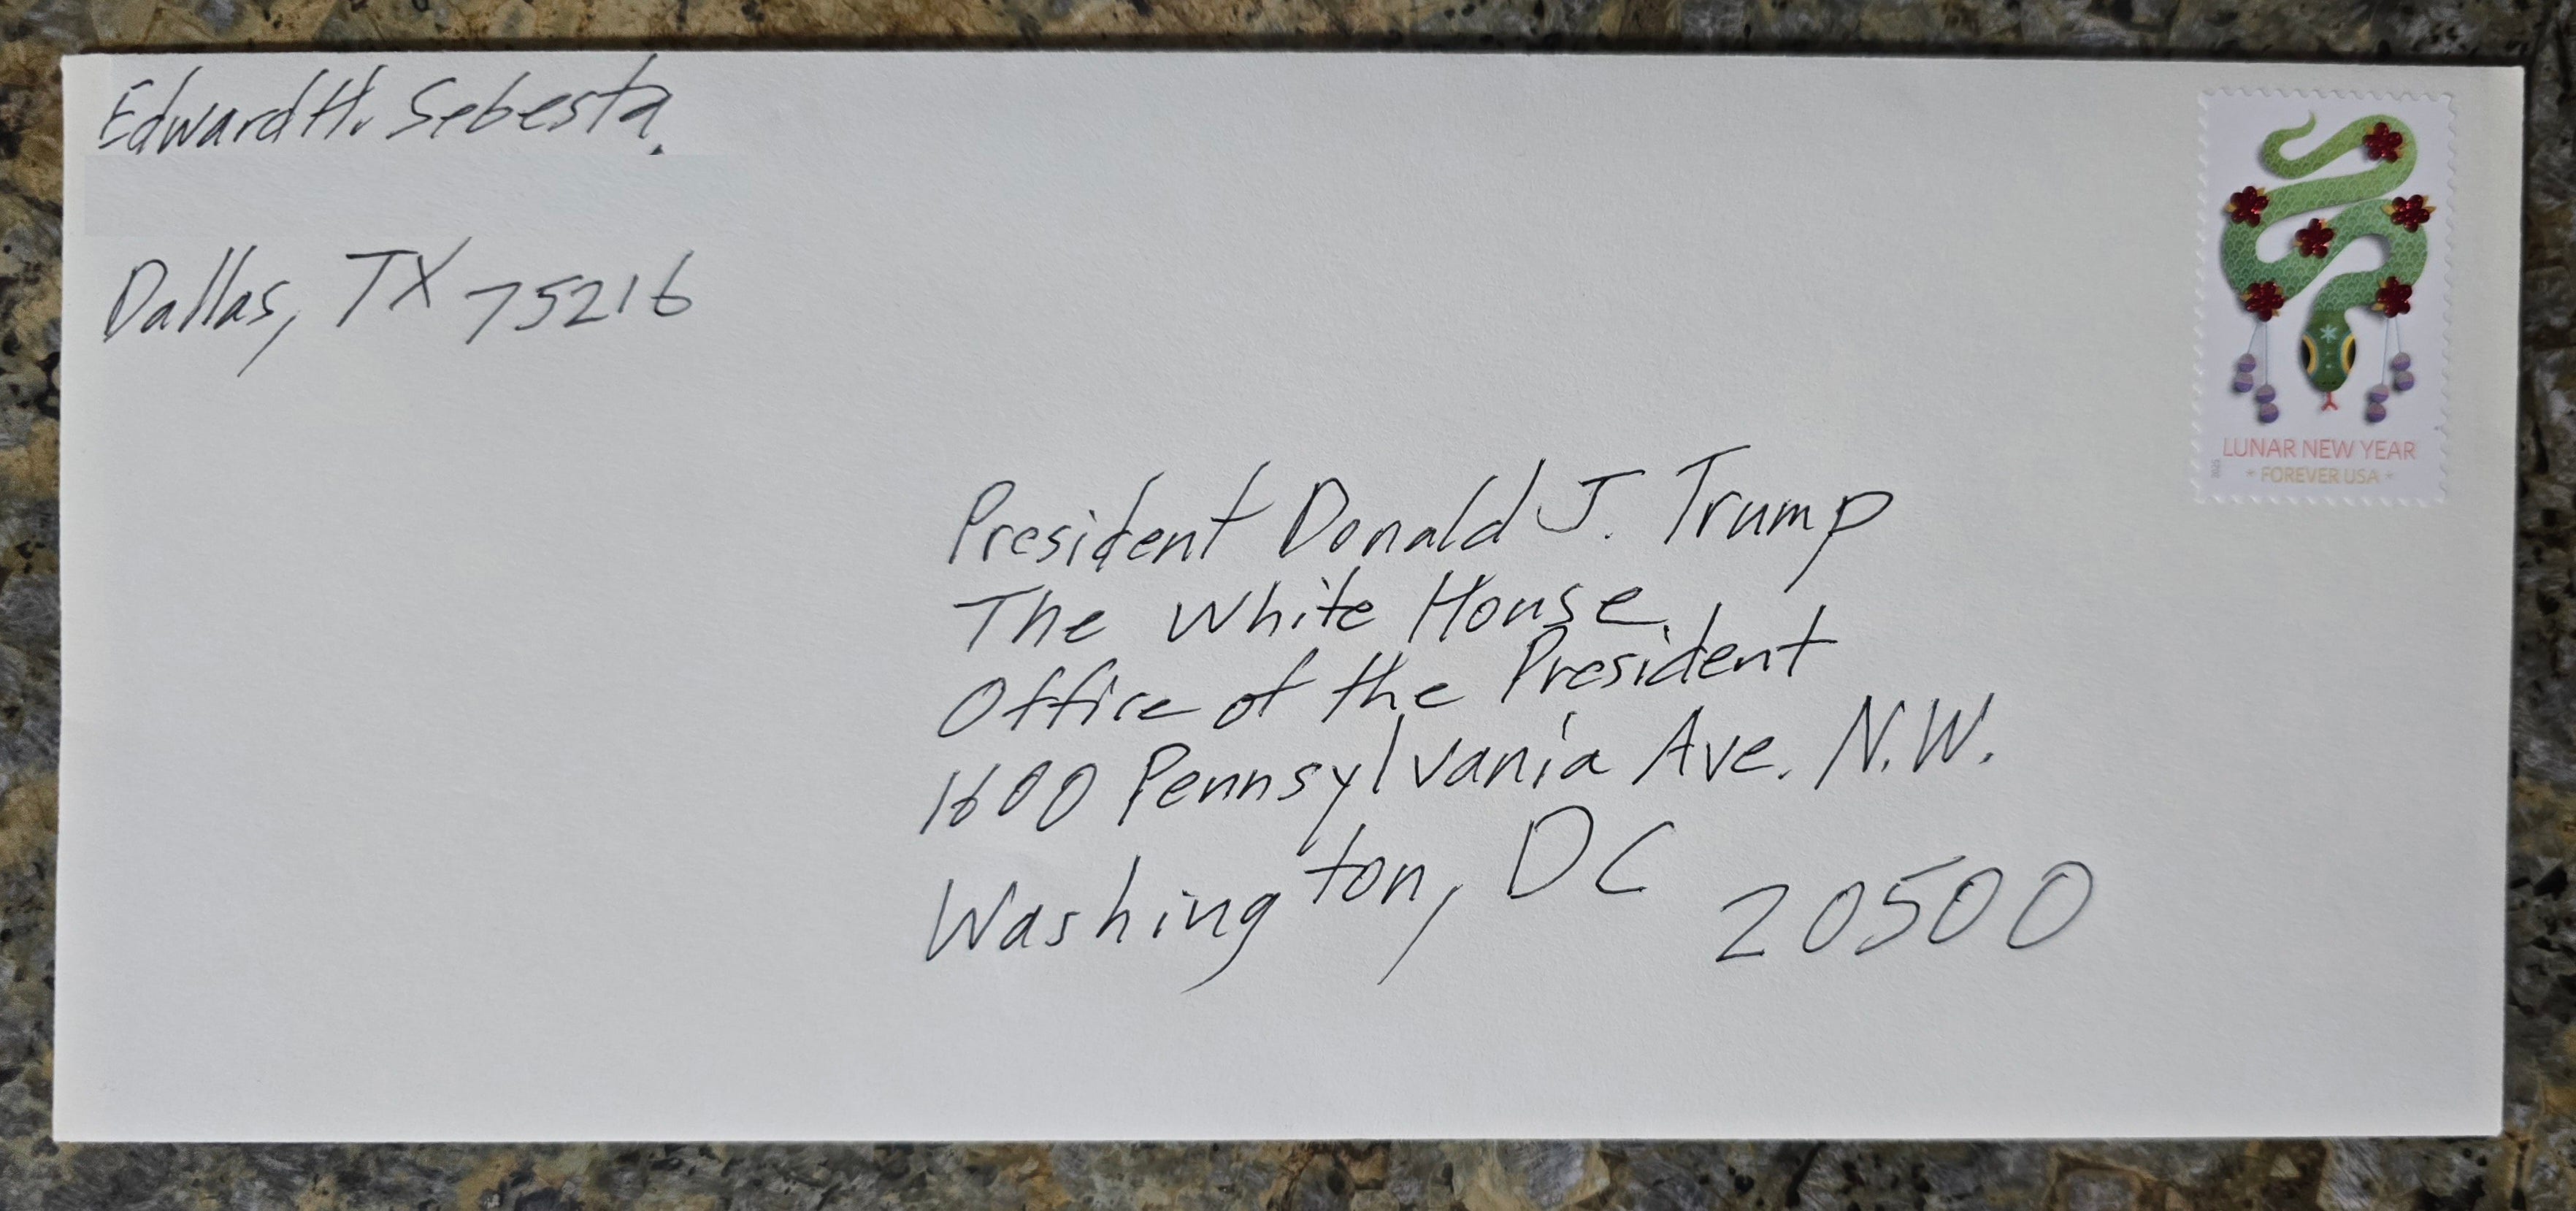 Edward H. Sebesta
Dallas, TX 75216
LUNAR NEW YEAR
FOREVER USA
2025
President Donald J. Trump
The White House
Office of the President
1600 Pennsylvania Ave. N.W.
Washington, DC 20500